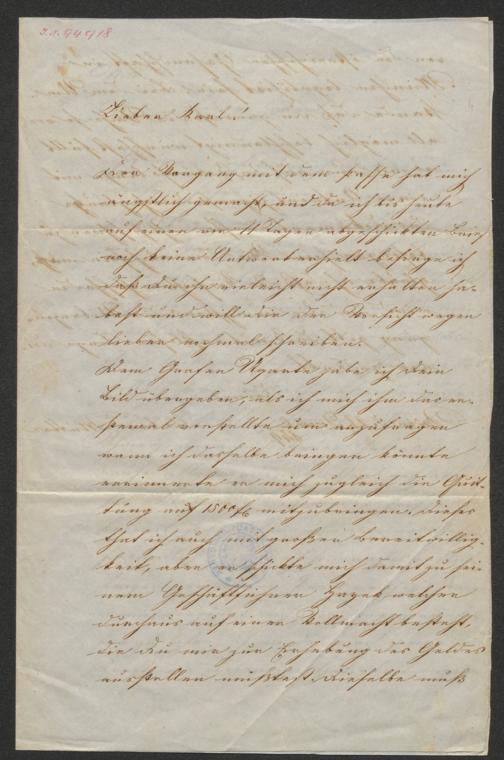 I.N. 94918
Lieber Karl!
Der Vorgang mit dem Passe hat mich
ängstlich gemacht, und da ich bis heute
auf einen vor 11 Tagen abgeschickten Brief
noch keine Antwort erhielt besorge ich
daß du ihn vieleicht nicht erhalten ha-
best und will dir der Vorsicht wegen
lieber nochmal schreiben.
Dem Grafen Ugarte habe ich dein
Bild übergeben, als ich mich ihm das er-
stemal vorstellte um anzufragen
wann ich dasselbe bringen könnte
erinnerte er mich zugleich die Quit-
tung auf 1500 f mitzubringen. Dieses
that ich auch mit großer Bereitwillig-
keit, aber er schickte mich damit zu sei-
nem Geschäftsführer Hayek welcher
durchaus auf einer Vollmacht besteht,
die du mir zur Erhebung des Geldes
ausstellen mußtest. Dieselbe muß